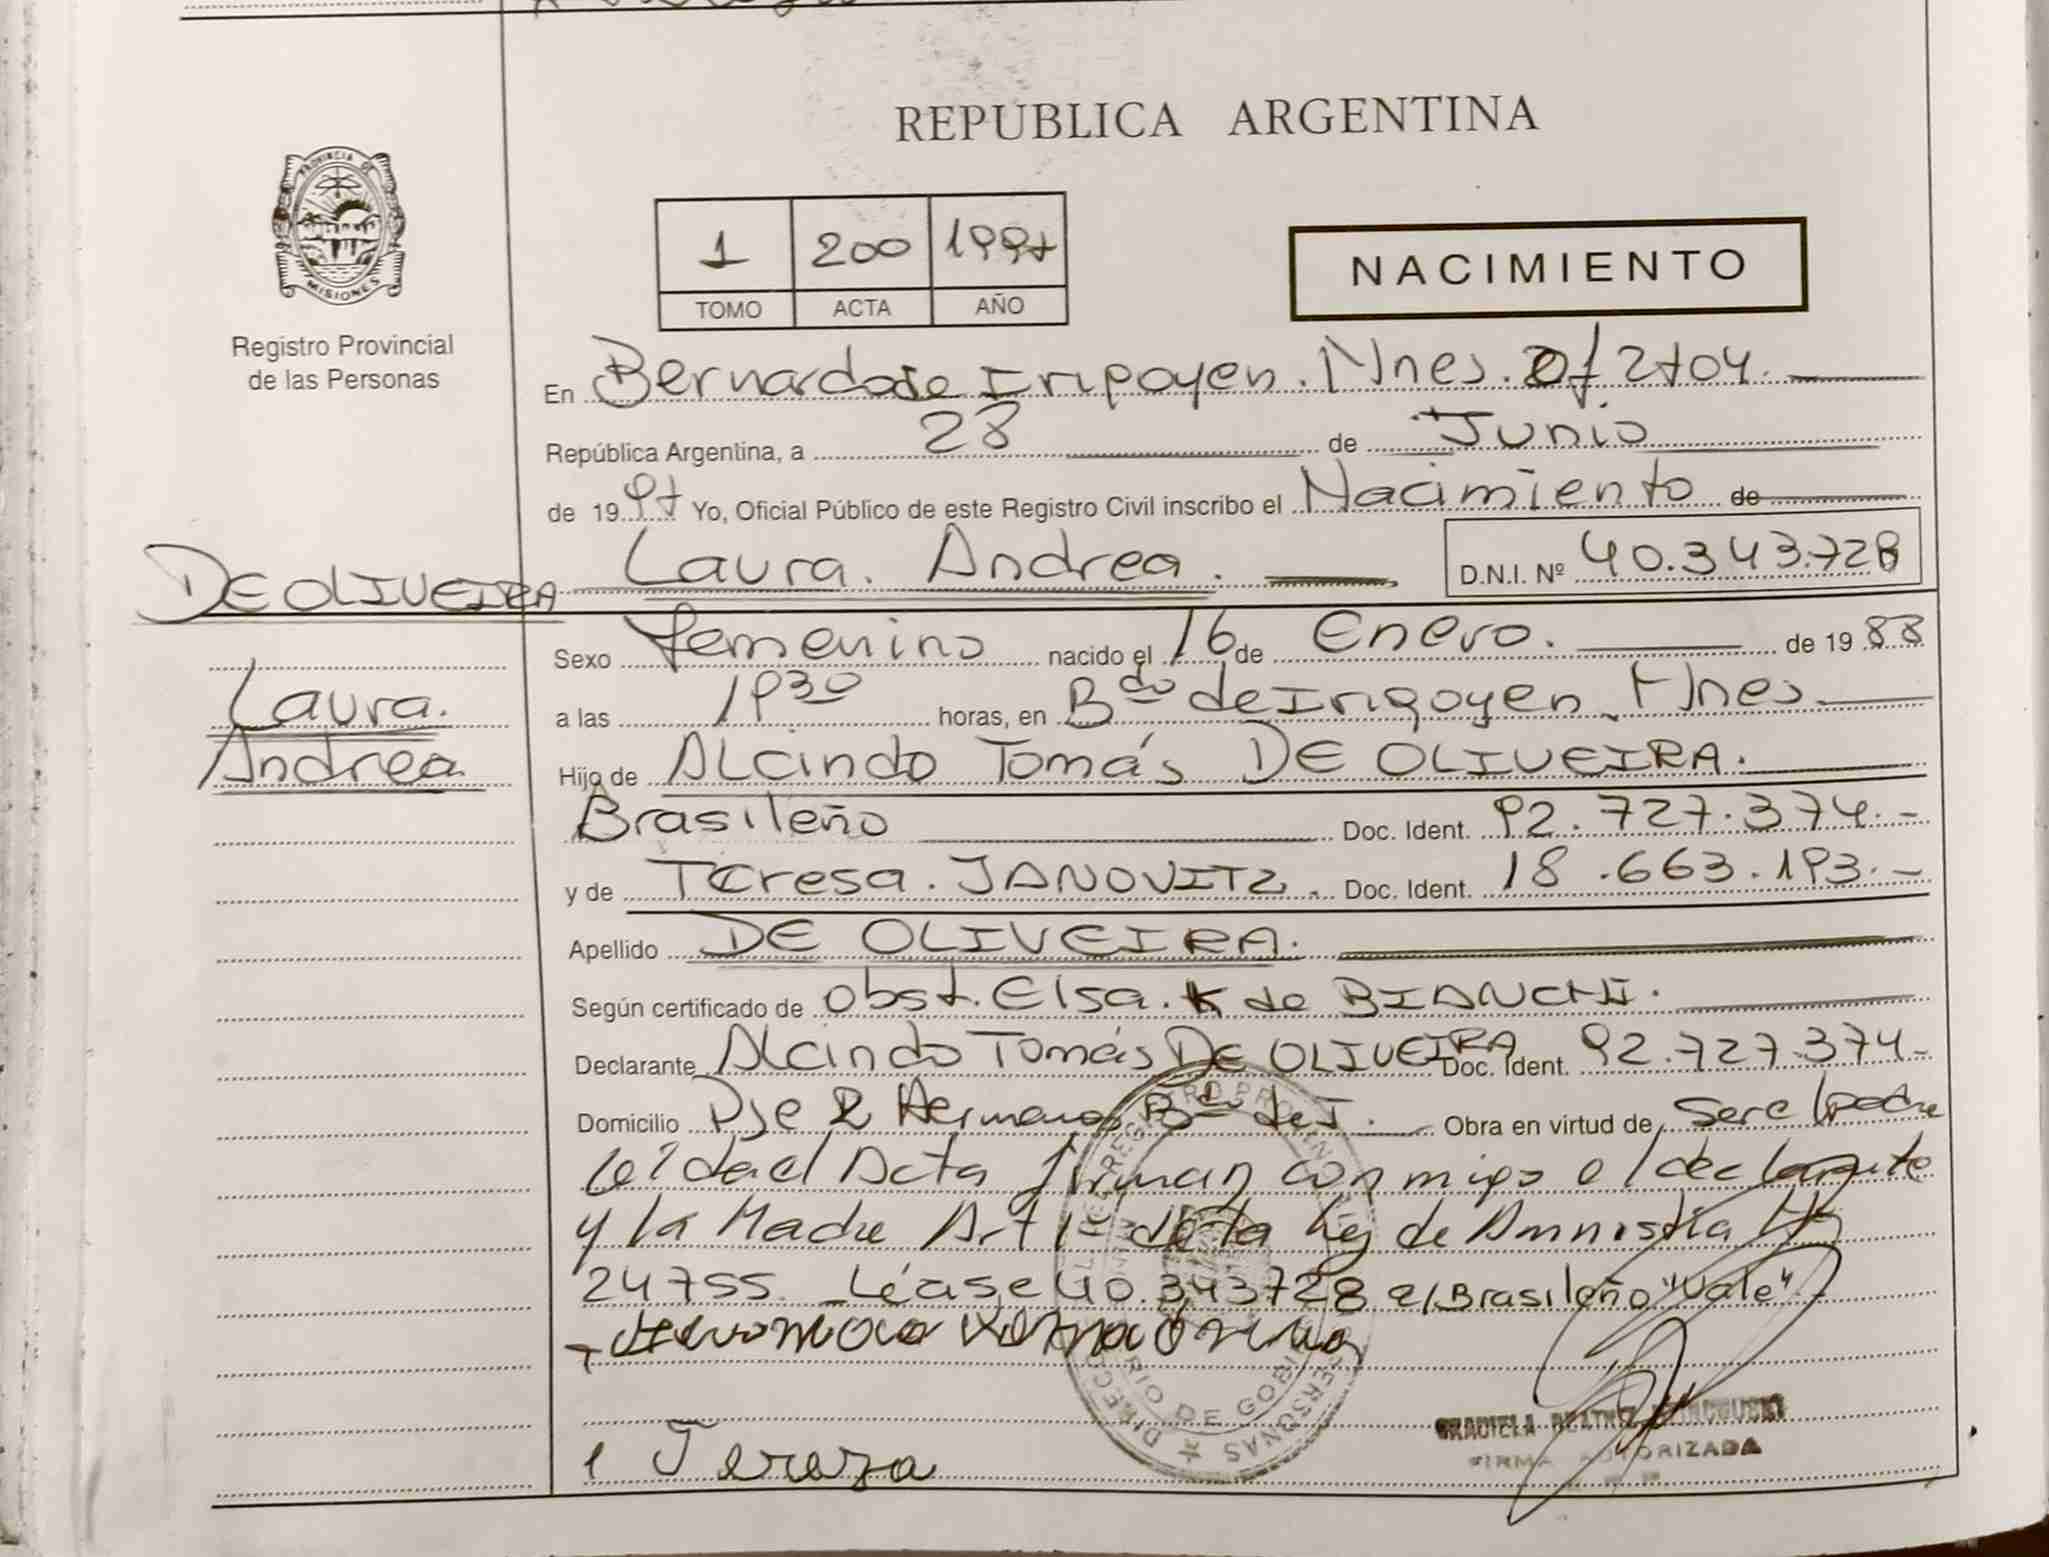 REPUBLICA ARGENTINA
PROVINCIA DE MISIONES
Registro Provincial
de las Personas
1 200 1997
TOMO ACTA AÑO
NACIMIENTO
En Bernardo de Irigoyen. Mnes. Of 2704.
República Argentina, a 28 de Junio
de 1997 Yo, Oficial Público de este Registro Civil inscribo el Nacimiento de
Laura. Andrea. D.N.I. Nº 40.343.728
DE OLIVEIRA
Laura.
Andrea
Sexo femenino nacido el 16 de Enero. de 1988
a las 1930 horas, en Bdo de Irigoyen Mnes
Hijo de Alcindo Tomás DE OLIVEIRA.
Brasileño Doc. Ident. 92.727.374.-
y de Teresa. JANOVITZ. Doc. Ident. 18.663.193.-
Apellido DE OLIVEIRA.
Según certificado de obst. Elsa. K de BIANCHI.
Declarante Alcindo Tomás DE OLIVEIRA Doc. Ident. 92.727.374-
Domicilio Pje 2 Hermanos Bdo de I. Obra en virtud de ser el padre
leída el Acta firman conmigo el declarante
y la Madre Art 1º de la Ley de Amnistia Nº
24755. Léase 40.343728 e/Brasileño "Vale"
Tereza
GRACIELA BEATRIZ
FIRMA AUTORIZADA